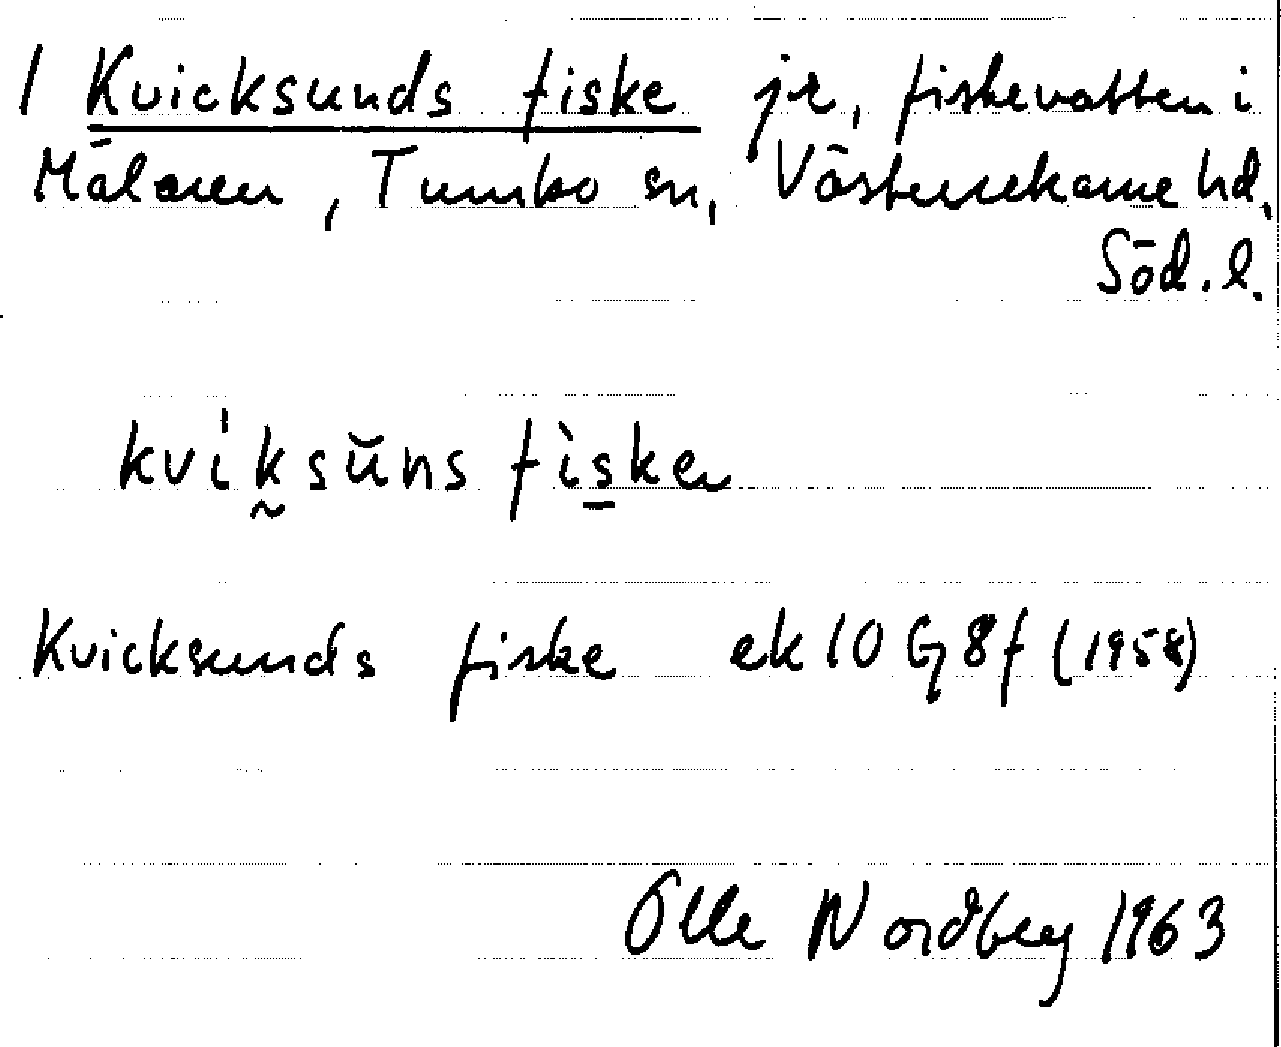 / Kvicksunds fiske jr, fiskevatten i
Mälaren, Tumbo sn, Västerrekarne hd,
Söd. l.
kvik̰sŭns fìs̲ke
Kvicksunds fiske ek 10 G 8 f (1958)
Olle Nordberg 1963